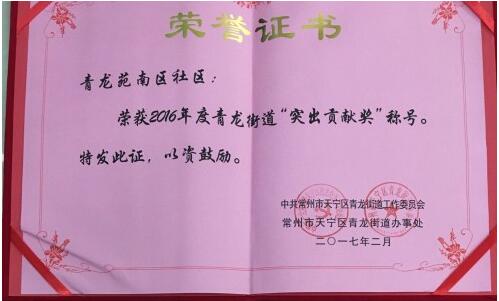 荣誉证书
青龙苑南区社区：
荣获2016年度青龙街道“突出贡献奖”称号。
特发此证，以资鼓励。
中共常州市天宁区青龙街道工作委员会
常州市天宁区青龙街道办事处
二〇一七年二月